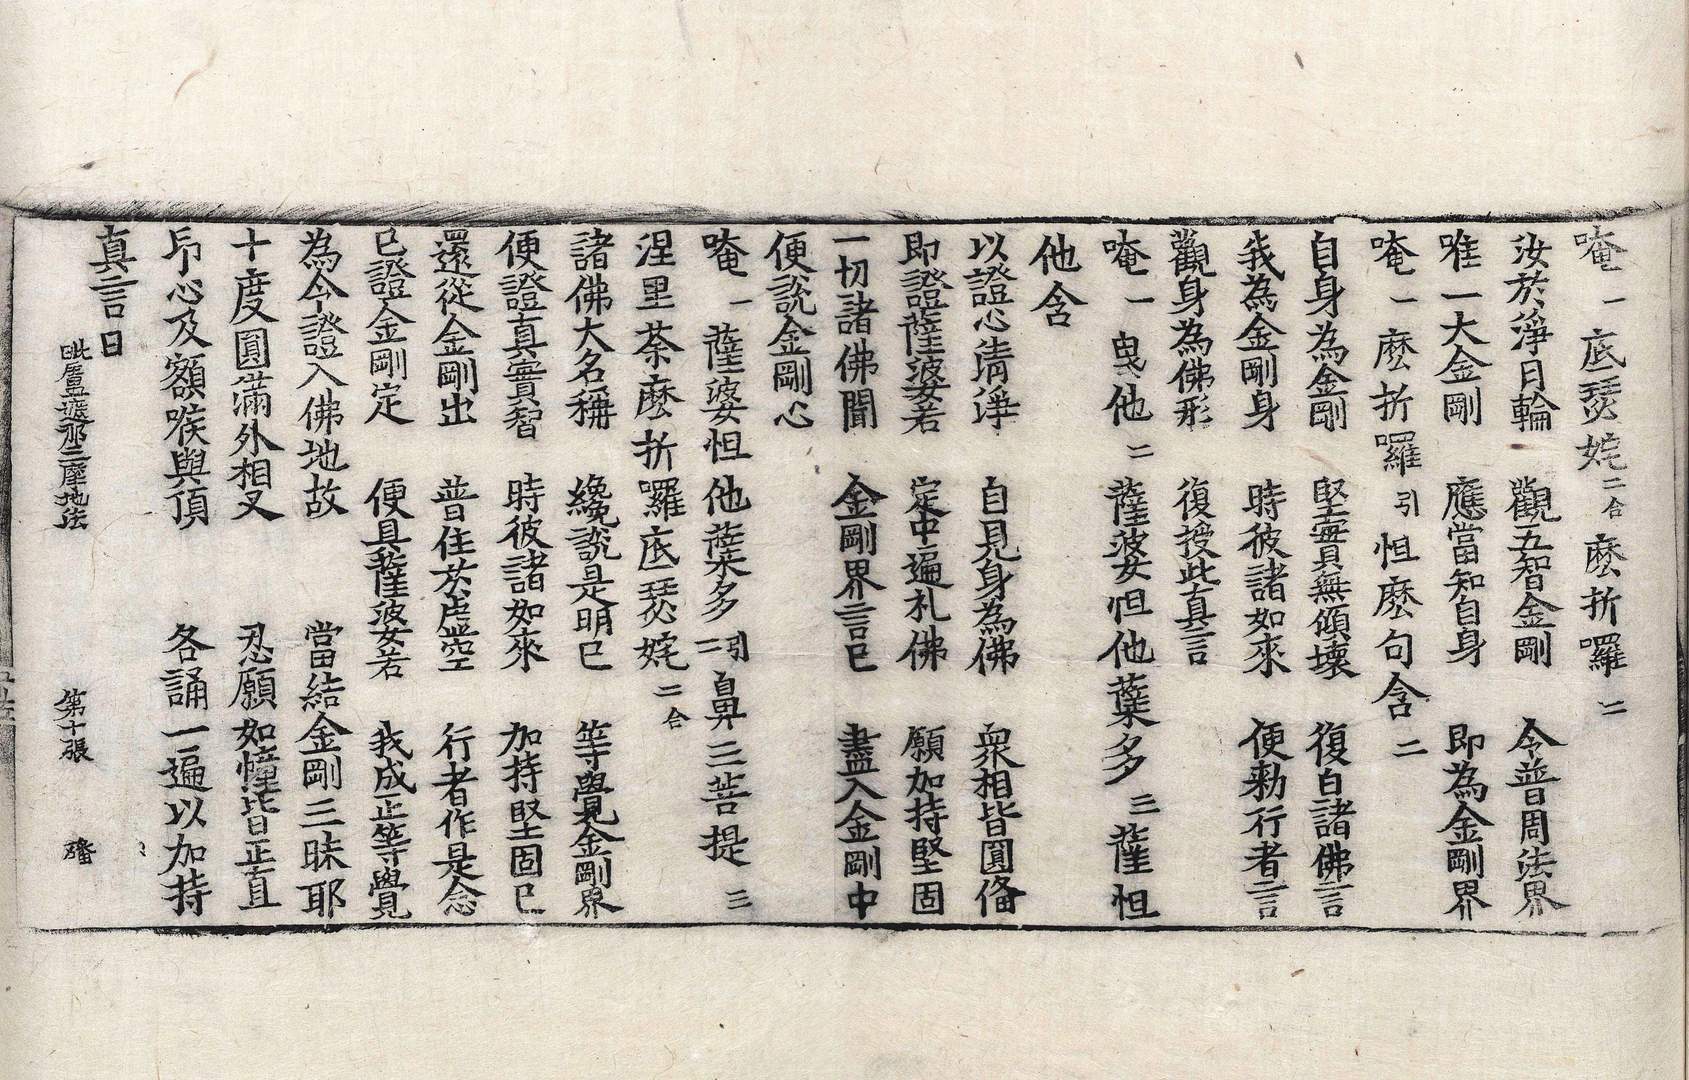 唵一底瑟姹二合麼折囉二
汝於淨日輪 觀五智金剛 令普周法界
唯一大金剛 應當知自身 即為金剛界
唵一麼折囉引怛麼句含二
自身為金剛 堅實無傾壞 復白諸佛言
我為金剛身 時彼諸如來 便勑行者言
觀身為佛形 復授此真言
唵一曳他二薩婆怛他蘖多三薩怛
他含
以證心清淨 自見身為佛 衆相皆圓俻
即證薩婆若 定中遍礼佛 願加持堅固
一切諸佛聞 金剛界言已 盡入金剛中
便說金剛心
唵一薩婆怛他蘖多引二鼻三菩提三
涅里荼麼折囉底瑟姹二合
諸佛大名稱 纔說是明已 等覺金剛界
便證真實智 時彼諸如來 加持堅固已
還從金剛出 普住於虛空 行者作是念
已證金剛定 便具薩婆若 我成正等覺
為令證入佛地故 當結金剛三昧耶
十度圓滿外相叉 忍願如幢皆正直
印心及額喉與頂 各誦一遍以加持
真言曰
毗盧遮那三摩地法 第十張 磻